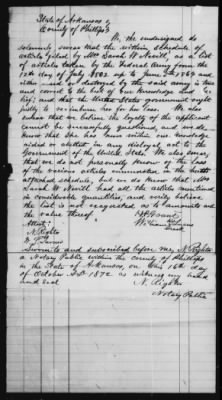 State of Arkansas }
County of Phillips }
We, the undersigned do
solemnly swear that the within Schedule of
articles filed by Mrs Sarah W. Nevill, as a list
of articles taken by the Federal Army from the
12th day of July 1862 up to June 2d 1864 and
either used or destroyed by the said army is true
and correct to the best of our knowledge and be-
lief, and that the United States government ought
justly to reimburse her for her loss. We would
swear that we believe the loyalty of the applicant
cannot be successfully questioned, and we do
know that she has never within our knowledge
aided or abetted in any disloyal act to the
Government of the United States. We also swear,
that we do not personally know of the loss
of the various articles enumerated in the
attached schedule, but we do know that Mrs
Sarah W. Nevill had all the articles mentioned
in considerable quantities, and verily believe
the list is not exaggerated as to amounts nor
the value thereof.
Attest:
N. Rightor
William his
mark
Sworn to and subscribed before me, N. Rightor
a Notary Public within the county of Phillips
in the State of Arkansas, on this 16th day
of October A.D. 1872 as witness my hand
and seal
N. Rightor
Notary Public